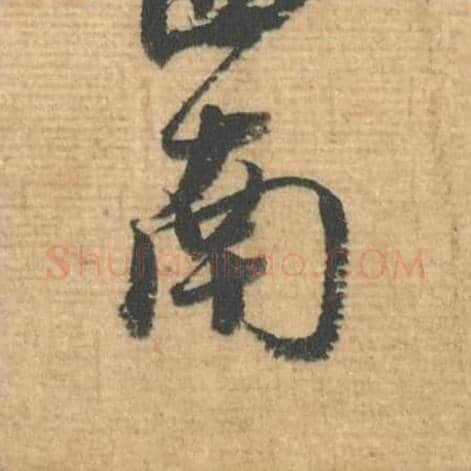 南
Shufazihao.COM